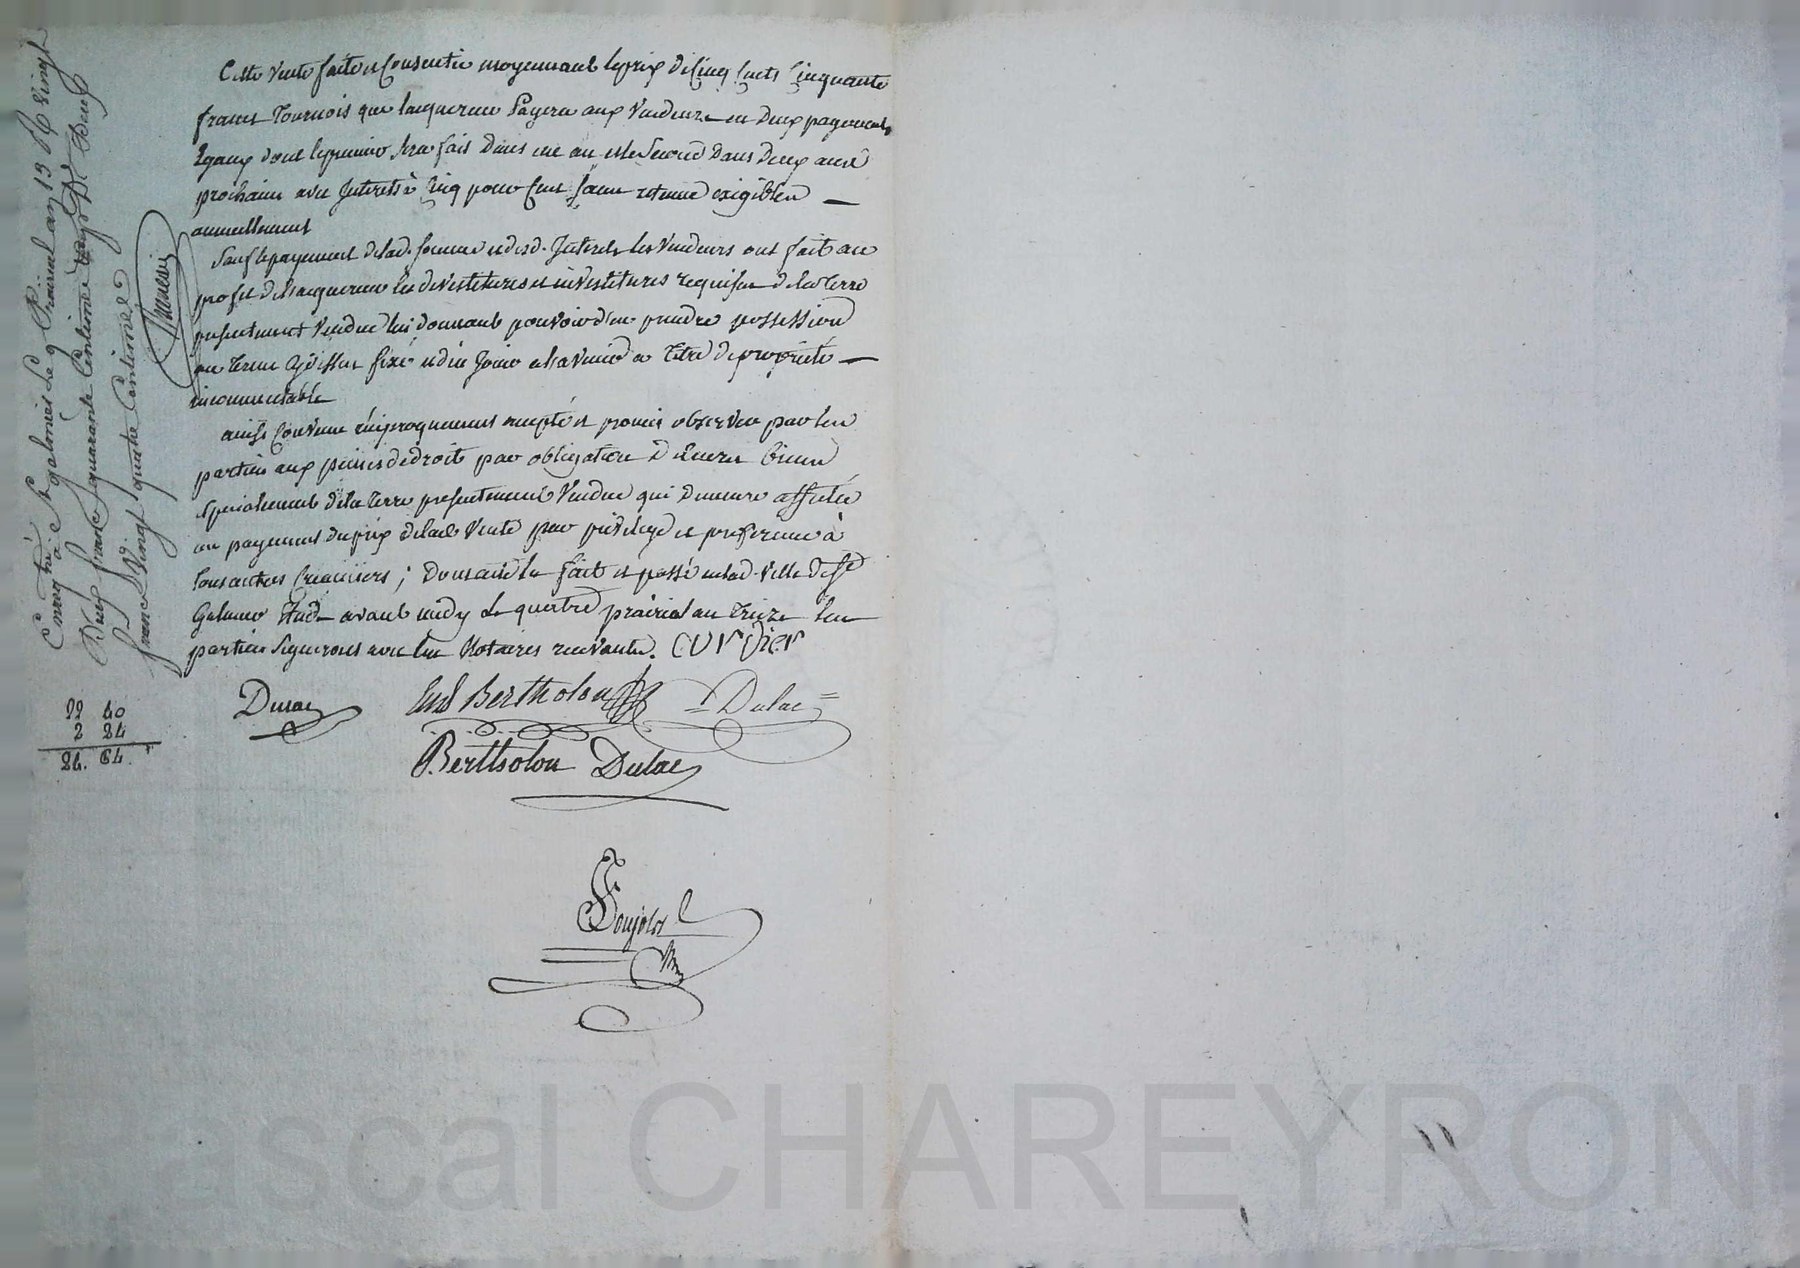 Cette vente faite et consentie moyennant le prix de cinq cents cinquante
francs tournois que l'acquereur payera aux vendeurs en deux payements
egaux dont le premier sera fait dans un an et le second dans deux ans
prochain avec interets à cinq pour cent sans retenue exigibles
annuellement
Sauf le payement de lad. somme et desd. interets les vendeurs ont fait au
profit de l'acquereur les devestitures et investitures requises de la terre
presentement vendue lui donnant pouvoir d'en prendre possession
au terme cy dessus fixé et d'en jouir à l'avenir à titre de propriété
incommutable
ainsi convenu réciproquement accepté et promis observer par les
parties aux peines de droit par obligation de leurs biens
specialement de la terre presentement vendue qui demeure affectée
au payement du prix de lad. vente par privilege et preference à
tous autres creanciers ; dont acte fait et passé en lad. ville de St
Galmier etude avant midy le quatre prairial an treize les
parties signerons avec les Notaires recevants. CUrDier
Dusac Bertholon Dulac
Bertholon Dulac
Coujolas
Enreg tré à St galmier le 9 Prairial an 13 R vingt
Deux francs quarante Centimes Deux
francs Vingt quatre Centimes
22 40
2 24
24. 64
Pascal CHAREYRON